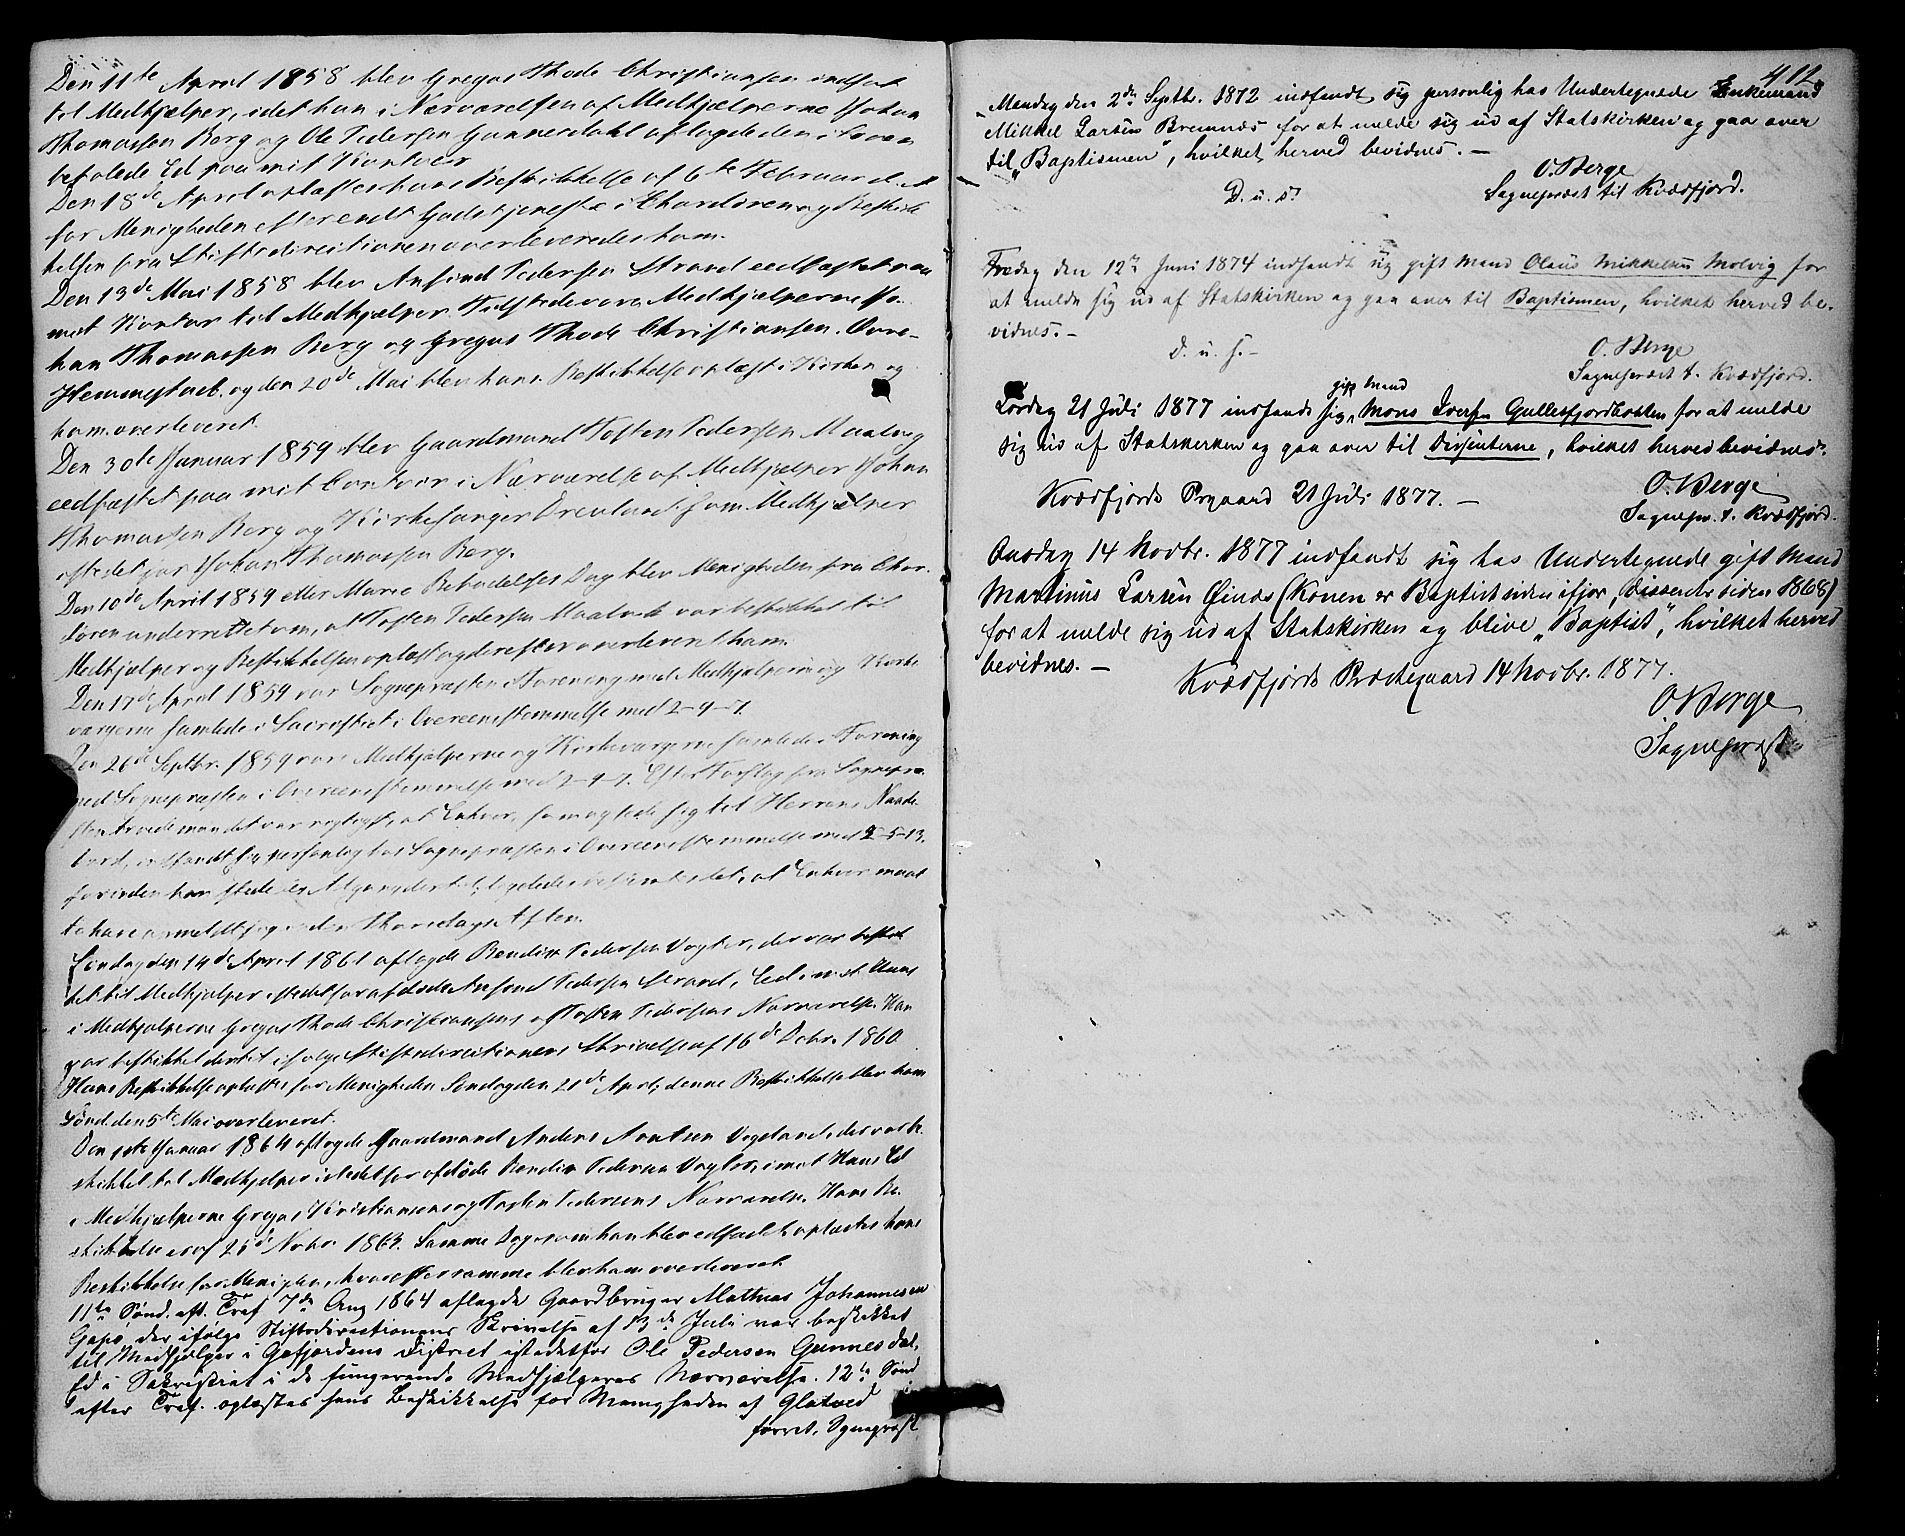 Den 11te April 1858 blev Gregus Thode Christiansen indsat
til Medhjælper, idet han i Nærværelsen af Medhjælperne Johan
Thomassen Berg og Ole Pedersen Gunnesdahl aflagde den i Loven
befalede Ed paa mit Kontoir
Den 18de April oplæstes hans Beskikkelse af 6te Februar d. A.
for Menigheden efter endt Gudstjeneste i Chordøren og Beskik-
kelsen fra Stiftsdirectionen overleveredes ham.
Den 13de Mai 1858 blev Anfind Pedersen Strand eedfæstet paa
mit Kontor til Medhjælper. Tilstede vare Medhjælperne Jo-
han Thomassen Berg og Gregus Thode Christiansen.
Hemmestad. og den 20de Mai blev hans Beskikkelse oplæst i Kirken og
ham overleveret
Den 30te Januar 1859 blev Gaardmand Tosten Pedersen Maalvig
eedfæstet paa mit Contoir i Nærværelse af Medhjælper Johan
Thomassen Berg og Kirkesanger Drevland som Medhjælper
istedetfor Johan Thomassen Berg.
Den 10de April 1859 eller Mariæ Bebudelses Dag blev Menigheden fra Chor-
døren underrettet om, at Tosten Pedersen Maalvik var beskikket til
Medhjælper og Beskikkelsen oplæst og derefter overleveret ham.
Den 17de April 1859 var Sognepræsten i Forening med Medhjælperne og Kirke-
værgerne samlede i Sacristiet i Overeenstemmelse med 2-9-7.
Den 26de Septbr. 1859 vare Medhjælperne og Kirkeværgerne samlede i Forening
med Sognepræsten i Overeenstemmelse med 2-9-7. Efter Forslag fra Sognepræ-
sten at Enhver, som agtede sig til Herrens Naade-
bord, indfandt sig personlig hos Sognepræsten i Overeenstemmelse med 2-5-13.
forinden han stedes Adgang dertil, ligeledes bestemtes det, at Enhver maat-
te have anmeldt sig inden Thorsdags Aften.
Søndag den 14de April 1861 aflagde Bendix Pedersen Vogter, der var beskik-
ket til Medhjælper istedetfor afdøde Anfind Pedersen Strand, Ed i mit Huus
i Medhjælperne Gregus Thode Christiansens og Tosten Pedersens Nærværelse. Han
var beskikket dertil ifølge Stiftsdirectionens Skrivelse af 16de Debr. 1860.
Hans Beskikkelse oplæstes for Menigheden Søndag den 21de April; denne Beskikkelse blev ham
Sønd. den 5te Mai overleveret.
Den 1ste Januar 1864 aflagde Gaardmand Anders Arntsen Vogeland, der var be-
skikket til Medhjælper istedetfor afdøde Bendix Pedersen Vogter, i mit Huus Ed
i Medhjælperne Gregus Kristiansens og Tosten Pedersens Nærværelse. Hans Be-
skikkelse er af 25de Novbr 1863. Samme Dag som han blev edfæstet oplæstes hans
Beskikkelse for Menigheden, hvorefter samme blev ham overleveret
11te Sønd. eft. Tref 7de Aug 1864 aflagde Gaardbruger Mathias Johannesen
Gapø, der ifølge Stiftsdirectionens Skrivelse af 13de Juli var beskikket
til Medhjælper i Gofjordens District istedetfor Ole Pedersen Gunnesdal,
Ed i Sakristiet i de fungerende Medhjælperes Nærværelse. 12te Sønd
efter Tref. oplæstes hans Beskikkelse for Menigheden af Glatved
forret. Sgnepræst
412
Mandag den 2den Septbr. 1872 indfandt sig personlig hos Undertegnede Enkemand
Mikkel Larsen Bremnes for at melde sig ud af Statskirken og gaa over
til „Baptismen", hvilket herved bevidnes. —
O. Berge
D. u. s.
Sognepræst til Kvædfjord.
Fredag den 12te Juni 1874 indfandt sig gift Mand Olaus Mikkelsen Molvig for
at melde sig ud af Statskirken og gaa over til Baptismen, hvilket herved be-
vidnes. —
D. u. s. —
O. Berge
Sognepræst t. Kvædfjord.
gift Mand
Lørdag 21 Juli 1877 indfandt sig Mons Iversen Gullesfjordbotten for at melde
sig ud af Statskirken og gaa over til Dissenterne, hvilket herved bevidnes.
Kvædfjords Prgaard 21 Juli 1877. —
O. Berge
Sognepr. t. Kvædfjord.
Onsdag 14 Novbr. 1877 indfandt sig hos Undertegnede gift Mand
Martinus Larsen Øinæs (Konen er Baptist siden ifjor, Dissenter siden 1868)
for at melde sig ud af Statskirken og blive „Baptist", hvilket herved
bevidnes. —
Kvædfjords Præstegaard 14 Novbr. 1877.
O. Berge
Sognepræst